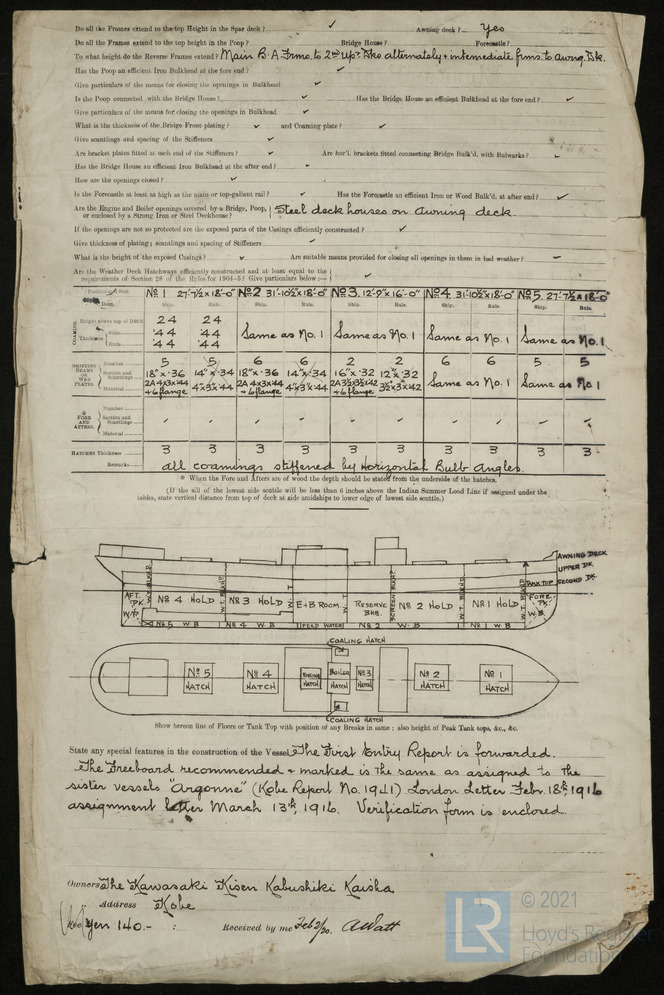 Do all the Frames extend to the top Height in the Spar deck? ✓ Awning deck? Yes
Do all the Frames extend to the top height in the Poop? Bridge House? Forecastle?
To what height do the Reverse Frames extend? Main B.A. Frms. to 2nd Upr. Dks alternately & intermediate frms. to awng. Dk.
Has the Poop an efficient Iron Bulkhead at the fore end? ✓
Give particulars of the means for closing the openings in Bulkhead ✓
Is the Poop connected with the Bridge House? ✓ Has the Bridge House an efficient Bulkhead at the fore end? ✓
Give particulars of the means for closing the openings in Bulkhead ✓
What is the thickness of the Bridge Front plating? ✓ and Coaming plate? ✓
Give scantlings and spacing of the Stiffeners ✓
Are bracket plates fitted at each end of the Stiffeners? ✓ Are hor'l. brackets fitted connecting Bridge Bulk'd. with Bulwarks?
Has the Bridge House an efficient Iron Bulkhead at the after end?
How are the openings closed? ✓
Is the Forecastle at least as high as the main or top-gallant rail? ✓ Has the Forecastle an efficient Iron or Wood Bulk'd. at after end? ✓
Are the Engine and Boiler openings covered by a Bridge, Poop, or enclosed by a Strong Iron or Steel Deckhouse? Steel deck houses on awning deck.
If the openings are not so protected are the exposed parts of the Casings efficiently constructed? ✓
Give thickness of plating; scantlings and spacing of Stiffeners ✓
What is the height of the exposed Casings? ✓ Are suitable means provided for closing all openings in them in bad weather?
Are the Weather Deck Hatchways efficiently constructed and at least equal to the
requirements of Section 28 of the Rules for 1904-5? Give particulars below:— ✓
No 1 27'-7½"x18'-0" No 2 31'-10½"x18'-0" No 3. 12'-9"x16'-0" No 4. 31'-10½"x18'-0" No 5. 27'-7½"x18'-0"
Item. Ship. Rule. Ship. Rule. Ship. Rule. Ship. Rule. Ship. Rule.
COAMING Height above top of DECK 24 24
Thickness Sides .44 .44 Same as No. 1 Same as No. 1 Same as No. 1 Same as No. 1
Ends .44 .44
SHIFTING BEAMS OR WEB PLATES. Number 5 5 6 6 2 2 6 6 5 5
Section and Scantlings 18"x.36 14"x.34 18"x.36 14"x.34 16"x.32 12"x.32 Same as No. 1 Same as No 1
Material 2A 4x3x.44 + 6 flange 4"x3"x.44 2A 4x3x.44 + 6 flange 4"x3"x.44 2A 3½x3½x.42 + 6 flange 3½"x3"x.42
* FORE AND AFTERS. Number
Section and Scantlings
Material
HATCHES Thickness 3 3 3 3 3 3 3 3 3 3
Remarks all coamings stiffened by Horizontal Bulb Angles.
* When the Fore and Afters are of wood the depth should be stated from the underside of the hatches.
(If the sill of the lowest side scuttle will be less than 6 inches above the Indian Summer Load Line if assigned under the
tables, state vertical distance from top of deck at side amidships to lower edge of lowest side scuttle.)
AWNING DECK
UPPER DK.
SECOND DK.
TANK TOP
AFT. PK. W.B
No 4 HOLD
No 3 HOLD
E+B ROOM
RESERVE BKR.
SCREEN BKHD
No 2 HOLD
No 1 HOLD
FORE PK. W.B.
No 5 W.B
No 4 W.B
FEED WATER
No 2 W.B
No 1 W.B
COALING HATCH
No 5 HATCH
No 4 HATCH
ENGINE HATCH
BOILER HATCH
No 3 HATCH
No 2 HATCH
No 1 HATCH
COALING HATCH
Show hereon line of Floors or Tank Top with position of any Breaks in same; also height of Peak Tank tops, &c., &c.
State any special features in the construction of the Vessel The First Entry Report is forwarded.
The Freeboard recommended & marked is the same as assigned to the
sister vessels "Argonne" (Kobe Report No. 1941) London Letter Febr. 18th, 1916
assignment letter March 13th, 1916. Verification form is enclosed.
Owners The Kawasaki Kisen Kabushiki Kaisha
Address Kobe
Yen 140.- : Received by me Feb 2/20. A Watt
LR © 2021
Lloyd's Register
Foundation